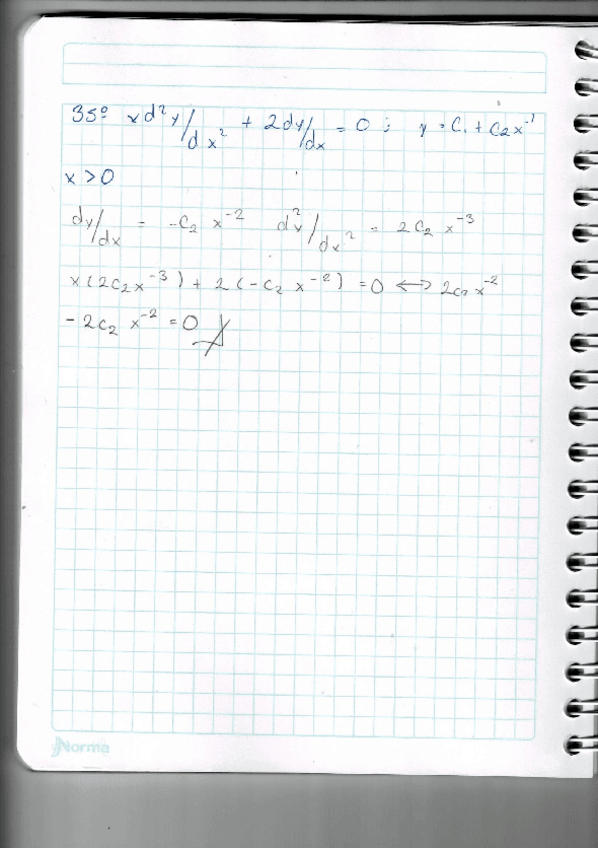 35º x d²y/dx² + 2dy/dx = 0 ; y = C₁ + C₂x⁻¹
x > 0
dy/dx = -C₂ x⁻² d²y/dx² = 2C₂ x⁻³
x(2C₂x⁻³) + 2(-C₂ x⁻²) = 0 ⟷ 2C₂x⁻²
- 2C₂ x⁻² = 0
Norma